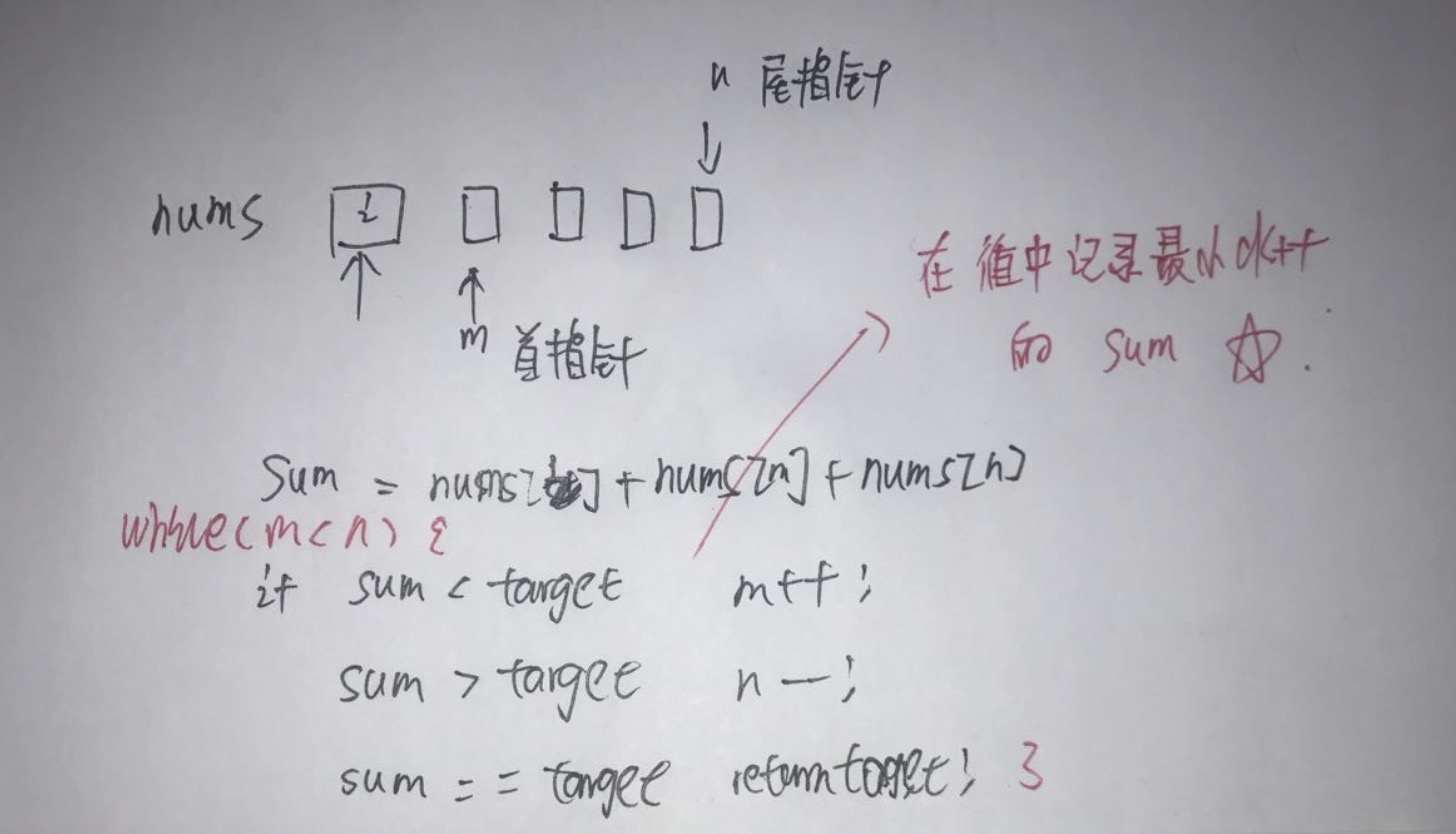 n 尾指针
nums i
m 首指针
在值中记录最小
的 sum ☆.
Sum = nums[i] + nums[m] + nums[n]
while(m<n) {
if sum < target m++;
sum > target n--;
sum == target return target; }